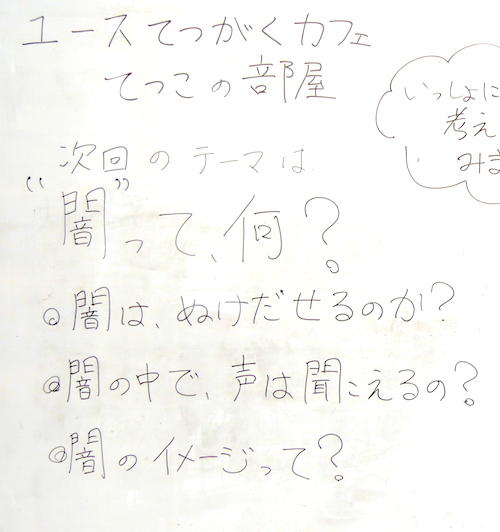 ユースてつがくカフェ
てつこの部屋
いっしょに
考え
みま
次回のテーマは
“闇”って、何?
◎闇は、ぬけだせるのか?
◎闇の中で、声は聞こえるの?
◎闇のイメージって?